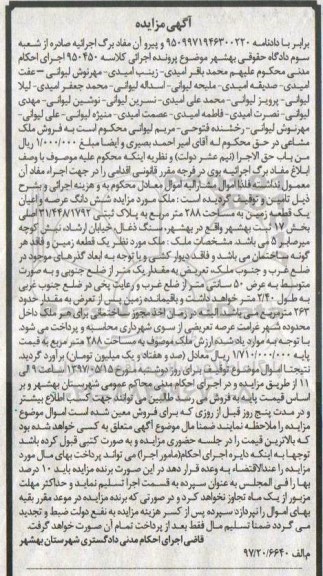 آگهی مزایده
برابر با دادنامه ۹۵۰۹۹۷۱۹۴۶۳۰۰۲۲۰ و پیرو آن مفاد برگ اجرائیه صادره از شعبه
سوم دادگاه حقوقی بهشهر موضوع پرونده اجرائی کلاسه ۹۵۰۴۵۰ اجرای احکام
مدنی محکوم علیهم محمد باقر امیدی - زینب امیدی - مهرنوش لیوانی - عفت
امیدی - صدیقه امیدی - ملیحه لیوانی - اسداله لیوانی - محمد جعفر امیدی - لیلا
لیوانی - پرویز لیوانی - محمد علی امیدی - نسرین لیوانی - نوشین لیوانی - مهدی
لیوانی - نصرت امیدی - فاطمه امیدی - عصمت امیدی - منیژه لیوانی - علی لیوانی -
مهرنوش لیوانی - رخشنده فتوحی - مریم لیوانی محکوم است به فروش ملک
مشاعی در حق محکوم له آقای امیر احمد بصیری و ایضا مبلغ ۱/۰۰۰/۰۰۰ ریال
من باب حق الاجرا (نیم عشر دولت) و نظر به اینکه محکوم علیه موصوف با وصف
ابلاغ مفاد برگ اجرائیه بوی در فرجه مقرر قانونی اقدامی را در جهت اجراء مفاد آن
معمول نداشته فلذا اموال مشارالیه اموال معادل محکوم به و هزینه اجرائی و بشرح
ذیل تامین و توقیف گردیده است: ملک مورد مزایده شش دانگ عرصه و اعیان
یک قطعه زمین به مساحت ۲۸۸ متر مربع به پلاک ثبتی ۳۱/۴۴۸۱۷۹۲ اصلی
بخش ۱۷ ثبت بهشهر واقع در بهشهر، سنگ ذغال، خیابان ارشاد، نبش کوچه
میرصابر ۵ می باشد. مشخصات ملک: ملک مورد نظر یک قطعه زمین و فاقد هر
گونه ساختمان می باشد و فاقد دیوار کشی و با توجه به ابعاد گذرهای موجود در
ضلع غرب و جنوب ملک، تعریض به مقدار یک متر از ضلع جنوبی و به صورت
متوسط به عرض ۵۰ سانتی متر از ضلع غرب و رعایت پخی در ضلع جنوب غربی
به طول ۲/۴۰ متر خواهد داشت و باقیمانده زمین پس از تعرض به مقدار حدود
۲۶۳ مترمربع می باشد. البته در زمان اخذ مجوز ساختمانی برای هر ملک داخل
محدوده شهر غرامت عرصه تعریضی از سوی شهرداری محاسبه و پرداخت می شود.
با توجه به موارد یاد شده ارزش ملک موصوف به مساحت ۲۸۸ متر مربع به قیمت
پایه ۱/۷۱۰/۰۰۰/۰۰۰ ریال معادل (صد و هفتاد و یک میلیون تومان) برآورد گردید.
نتیجتا اموال موضوع توقیف برای روز دوشنبه مورخ ۱۳۹۷/۰۵/۱۵ ساعت ۹ الی
۱۱ از طریق مزایده و در اجرای احکام مدنی محاکم عمومی شهرستان بهشهر و بر
اساس قیمت پایه به فروش می رسد طالبین می توانند جهت کسب اطلاع بیشتر
و در مدت پنج روز قبل از روزی که برای فروش معین شده است اموال موضوع
مزایده را ملاحظه نمایند ضمنا مال موضوع آگهی متعلق به کسی خواهد شده بود
که بالاترین قیمت را در جلسه حضوری مزایده و به صورت کتبی قبول کرده باشد
توجها به اینکه دایره اجرای احکام (مامور اجرا) می تواند پرداخت بهای مال مورد
مزایده را عندالاقتضاء به وعده قرار دهد در این صورت برنده مزایده باید ۱۰ درصد
بها را فی المجلس به عنوان سپرده به قسمت اجرا تسلیم نماید و حداکثر مهلت
مزبور از یک ماه تجاوز نخواهد کرد و در صورتی که برنده مزایده در موعد مقرر بقیه
بهای اموال را نپردازد سپرده پس از کسر هزینه مزایده به نفع دولت ضبط و تجدید
می گردد ضمنا تسلیم مال فقط بعد از پرداخت تمام آن صورت خواهد گرفت.
قاضی اجرای احکام مدنی دادگستری شهرستان بهشهر
م الف ۹۷/۲۰/۶۶۴۰